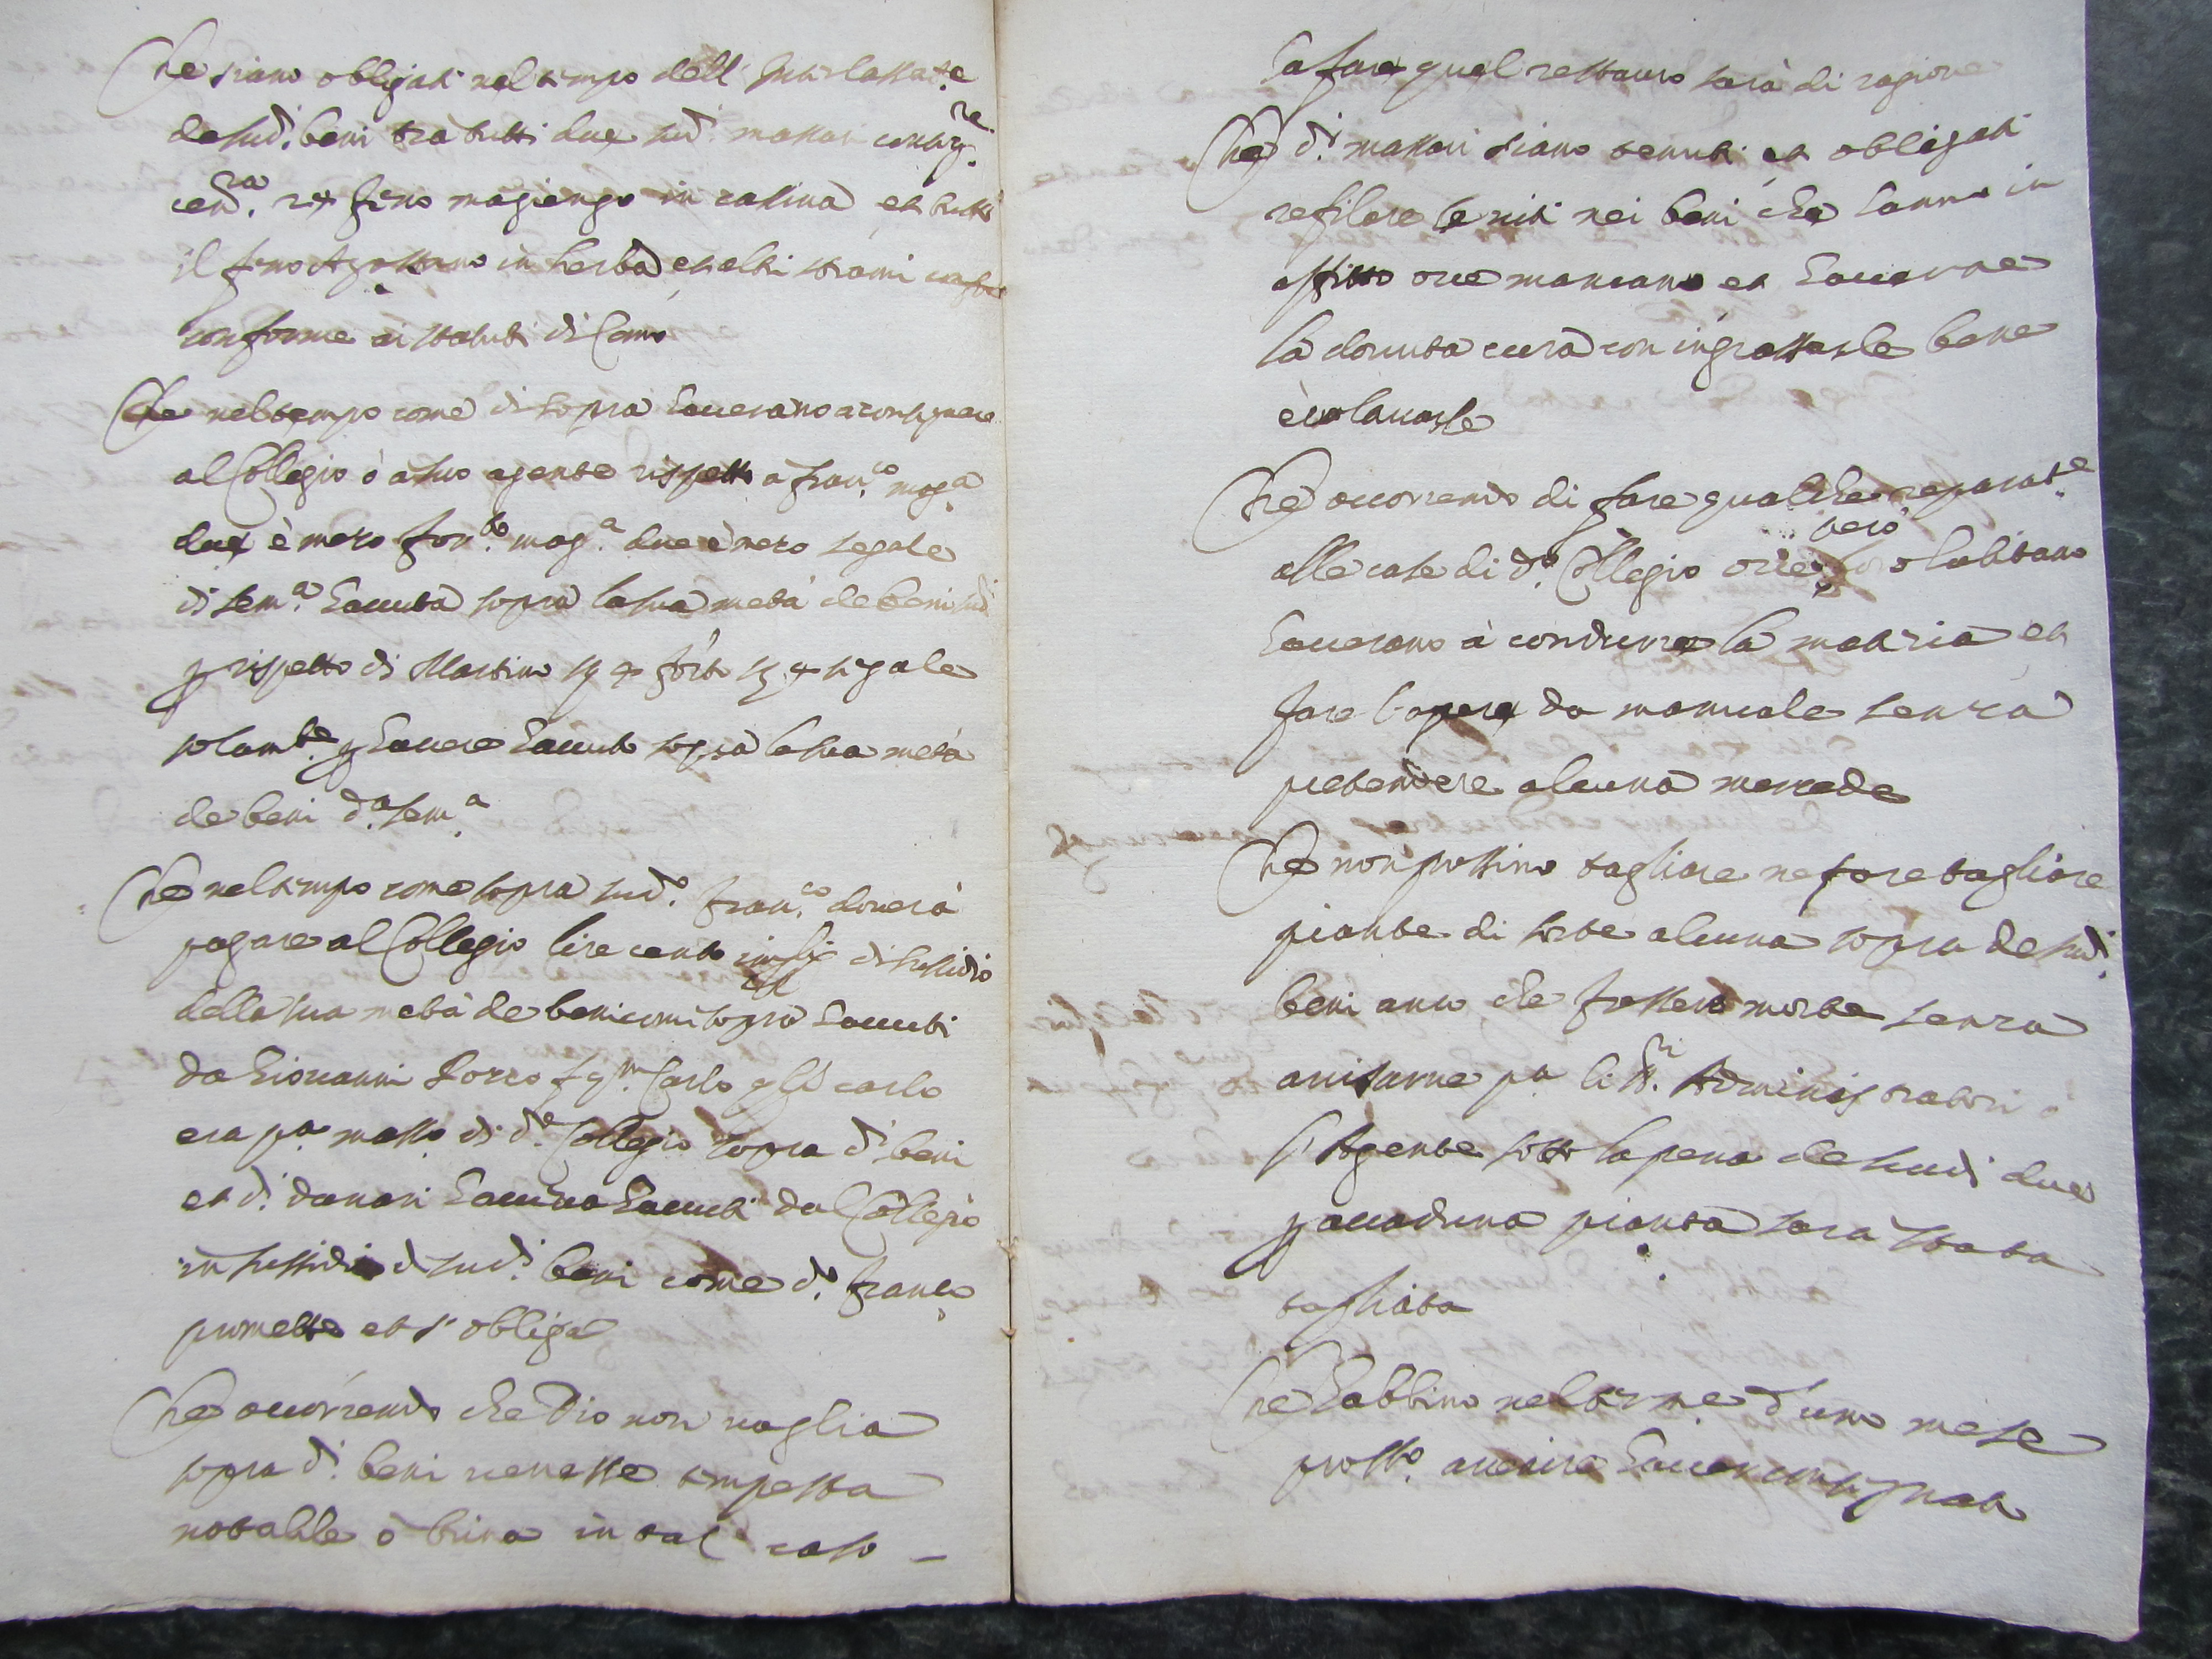 Che siano obligati nel tempo dell'
de sud.i beni tra tutti due sud.i massari
fieno magiengo in cassina et tutto
il fieno Agostano in herba et altri strami
conforme ai statuti di Como
Che nel tempo come di sopra haverano a consignare
al Collegio ò a suo agente rispetto a Fran.co mog.a
due è mezo form.to mog.a due è mezo segale
di sem.a hauuta sopra la sua metà de beni sud.i
rispetto di Martino form.to segale
solam.te hauere hauuto sopra la sua metà
de beni d.a sem.a
Che nel tempo come sopra sud.o Fran.co douerà
pagare al Collegio lire cento di sussidio
della sua metà de beni come sopra hauuti
da Giouanni Carlo carlo
era p.a mass.o di d.o Collegio sopra d.i beni
et d.i danari hauuti dal Collegio
in sussidio sud.i beni come d.o Fran.co
promette et s'obliga
Che occorrendo che Dio non uoglia
sopra d.i beni uenesse tempesta
notabile ò brina in tal caso –
sa fare quel restauro sarà di ragione
Che d.i massari siano tenuti et obligati
refilare le uiti nei beni che hanno in
affitto oue mancano et hauerne
la douuta cura con ingrassarle bene
è colauarle
Che occorrendo di fare qualche reparat.e
alle case di d.o Collegio oue però habitano
hauerano à condurre la materia et
fare l'opera da manuale senza
pretendere alcuna mercede
Che non possino tagliare ne fare tagliare
piante di sorte alcuna sopra de sud.i
beni anco che fossero morte senza
auisarne p.a li SS.ri Administratori ò
l'Agente sotto la pena de scudi due
p caaduna pianta sara stata
tagliata
Che habbino nel termine d'uno mese
pross.o auenire hauer consignati